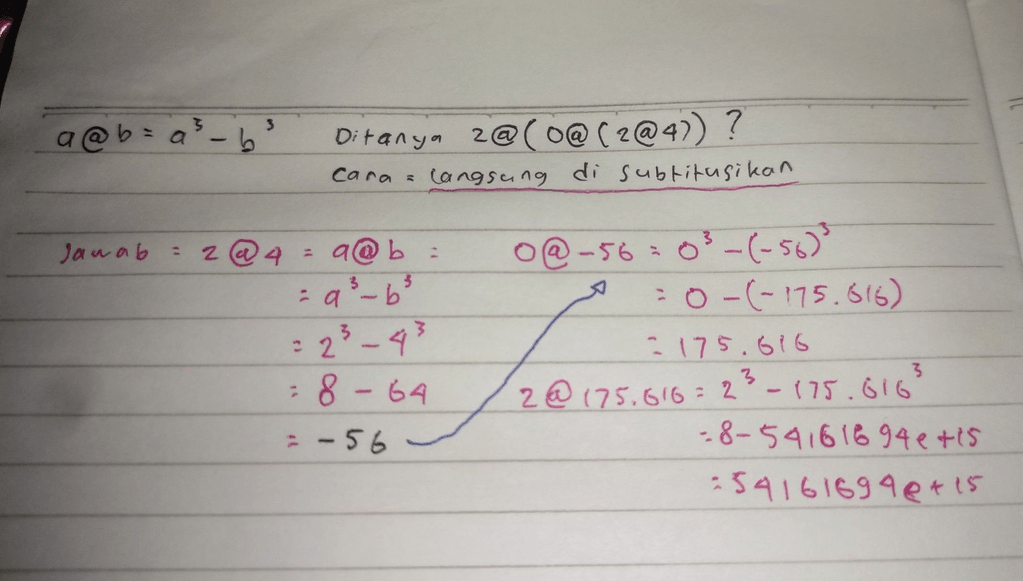 a@b = a³ - b³ Ditanya 2@(0@(2@4)) ?
Cara = langsung di subtitusikan
Jawab = 2@4 = a@b =
= a³ - b³
= 2³ - 4³
= 8 - 64
= -56
0@-56 = 0³ - (-56)³
= 0 - (-175.616)
= 175.616
2@175.616 = 2³ - 175.616³
= 8 - 54161694e+15
= 54161694e+15